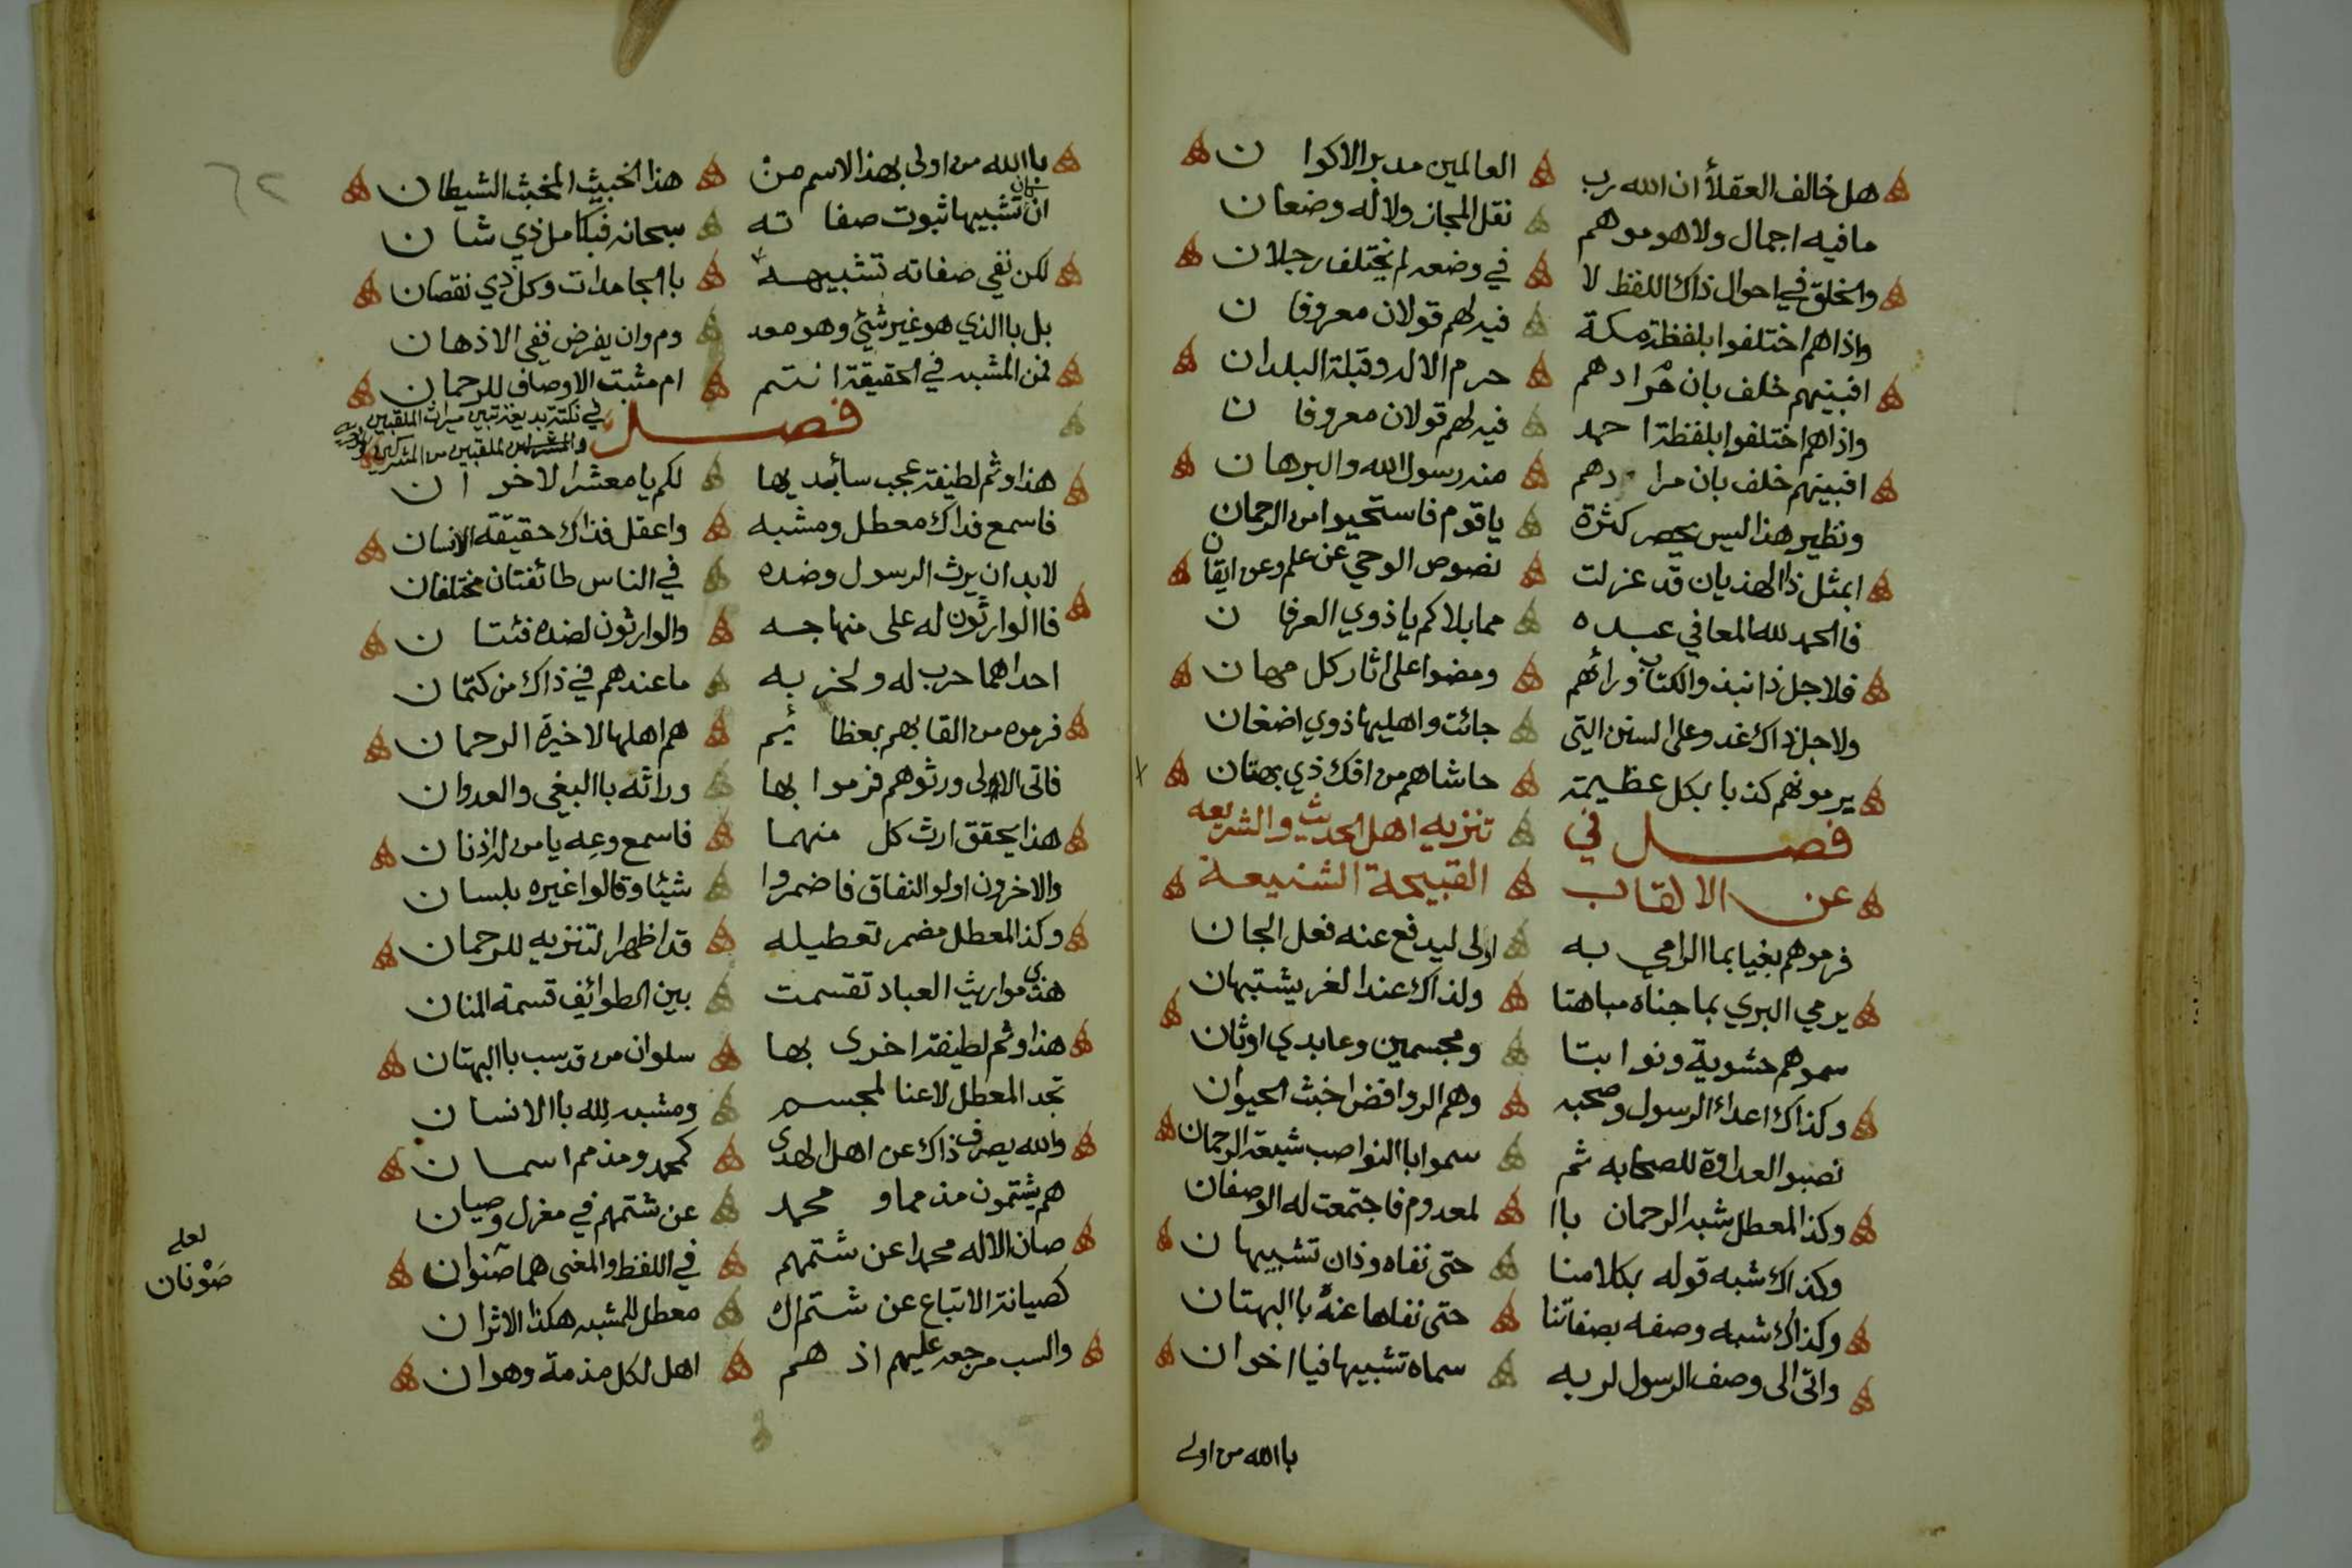 هل خالف العقلاء ان الله رب العالمين مدبر الاكوان
مافيه اجمال ولا هو موهم نقل المجاز ولا له وضعان
والخلق في احوال ذاك اللفظ لا في وضعه لم يختلف رجلان
واذا هم اختلفوا بلفظة مكة فيه لهم قولان معروفان
افبينهم خلف بان مرادهم حرم الاله وقبلة البلدان
واذا هم اختلفوا بلفظة احمد فيه لهم قولان معروفان
افبينهم خلف بان مرادهم منه رسول الله والبرهان
ونظير هذا ليس يحصر كثرة ياقوم فاستحيوا من الرحمان
ابمثل ذا الهذيان قد عزلت نصوص الوحي عن علم وعن ايقان
فاالحمد لله المعافي عبده مما بلاكم ياذوي العرفان
فلاجل ذا نبذ والكتاب ورائهم ومضوا على اثار كل مهان
ولاجل ذاك غدو على السنن التي جائت واهليها ذوي اضغان
يرمونهم كذبا بكل عظيمة حاشاهم من افك ذي بهتان
فصل في تنزيه اهل الحديث والشريعه
عن الالقاب القبيحة الشنيعة
فرموهم بغيا بما الرامي به اولى ليدفع عنه فعل الجان
يرمي البري بما جناه مباهتا ولذاك عند الغر يشتبهان
سموهم حشوية ونوابتا ومجسمين وعابدي اوثان
وكذاك اعداء الرسول وصحبه وهم الروافض اخبث الحيوان
نصبو العداوة للصحابه ثم سموا باالنواصب شيعة الرحمان
وكذا المعطل شبه الرحمان باا لمعدوم فاجتمعت له الوصفان
وكذاك شبه قوله بكلامنا حتى نفاه وذان تشبيهان
وكذاك شبه وصفه بصفاتنا حتى نفاها عنه باالبهتان
واتى الى وصف الرسول لربه سماه تشبيها فيا اخوان
باالله من اولى
باالله من اولى بهذا الاسم من هذا الخبيث المخبث الشيطان
ان كان تشبيها ثبوت صفاته سبحانه فبكامل ذي شان
لكن نفي صفاته تشبيهه باالجامدات وكل ذي نقصان
بل باالذي هو غير شيئ وهو معد وم وان يفرض ففي الاذهان
فمن المشبه في الحقيقة انتم ام مثبت الاوصاف للرحمان
فصل في نكتة بديعة تبين ميراث الملقبين
والملقبين من المشركين
هذا وثم لطيفة عجب سأبديها لكم يا معشر الاخوان
فاسمع فذاك معطل ومشبه واعقل فذاك حقيقة الانسان
لابد ان يرث الرسول وضده في الناس طائفتان مختلفان
فاالوارثون له على منهاجه والوارثون لضده فئتان
احداهما حرب له ولحزبه ماعندهم في ذاك من كتمان
فرموه من القابهم بعظائيم هم اهلها لا خيرة الرحمان
فاتى الاولى ورثوهم فرموا بها وراثه باالبغي والعدوان
هذا يحقق ارث كل منهما فاسمع وعه يامن له اذنان
والاخرون اولو النفاق فاضمروا شيئا وقالوا غيره بلسان
وكذا المعطل مضمر تعطيله قد اظهر التنزيه للرحمان
هذي مواريث العباد تقسمت بين الطوائف قسمة المنان
هذا وثم لطيفة اخرى بها سلوان من قد سب باالبهتان
تجد المعطل لاعنا لمجسم ومشبه لله باالانسان
والله يصرف ذاك عن اهل الهدى كمحمد ومذمم اسمان
هم يشتمون مذمما ومحمد عن شتمهم في معزل وصيان
صان الاله محمدا عن شتمهم في اللفظ والمعنى هما صنوان
لعله
صَوْنان
كصيانة الاتباع عن شتم ال معطل للمشبه هكذا الاثران
والسب مرجعه عليهم اذ هم اهل لكل مذمة وهوان